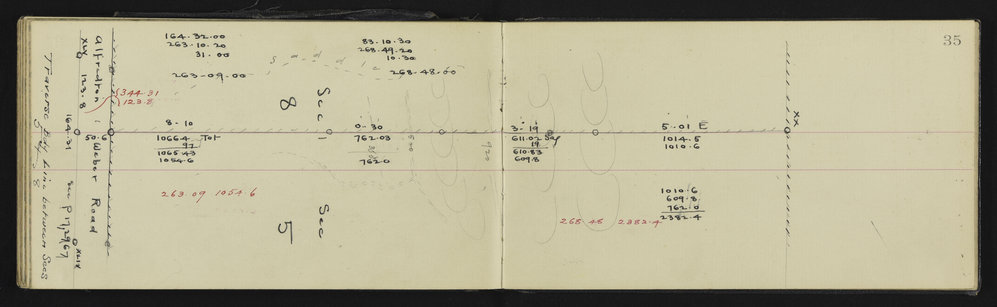 35
Traverse Bdy Line between Secs
5 & 8
Alfredton :
Weber Road
XLX 123.8
164.31
50.6
344.31
123.8
See P 17, 29, 67
XLIX
164.32.00
263.10.20
31.00
263-09-00
83.10.30
268.49.20
10.30
268-48-00
Saddle
Sec
8
Sec
5
8-10
1066.4 Tot
.97
1065.43
1054.6
0-30
762.03
762.0
3-19
611.02 Sag
.19
610.83
609.8
5.01 E
1014.5
1010.6
XX
263.09 1054.6
1010.6
609.8
762.0
2382.4
268.48 2382.4